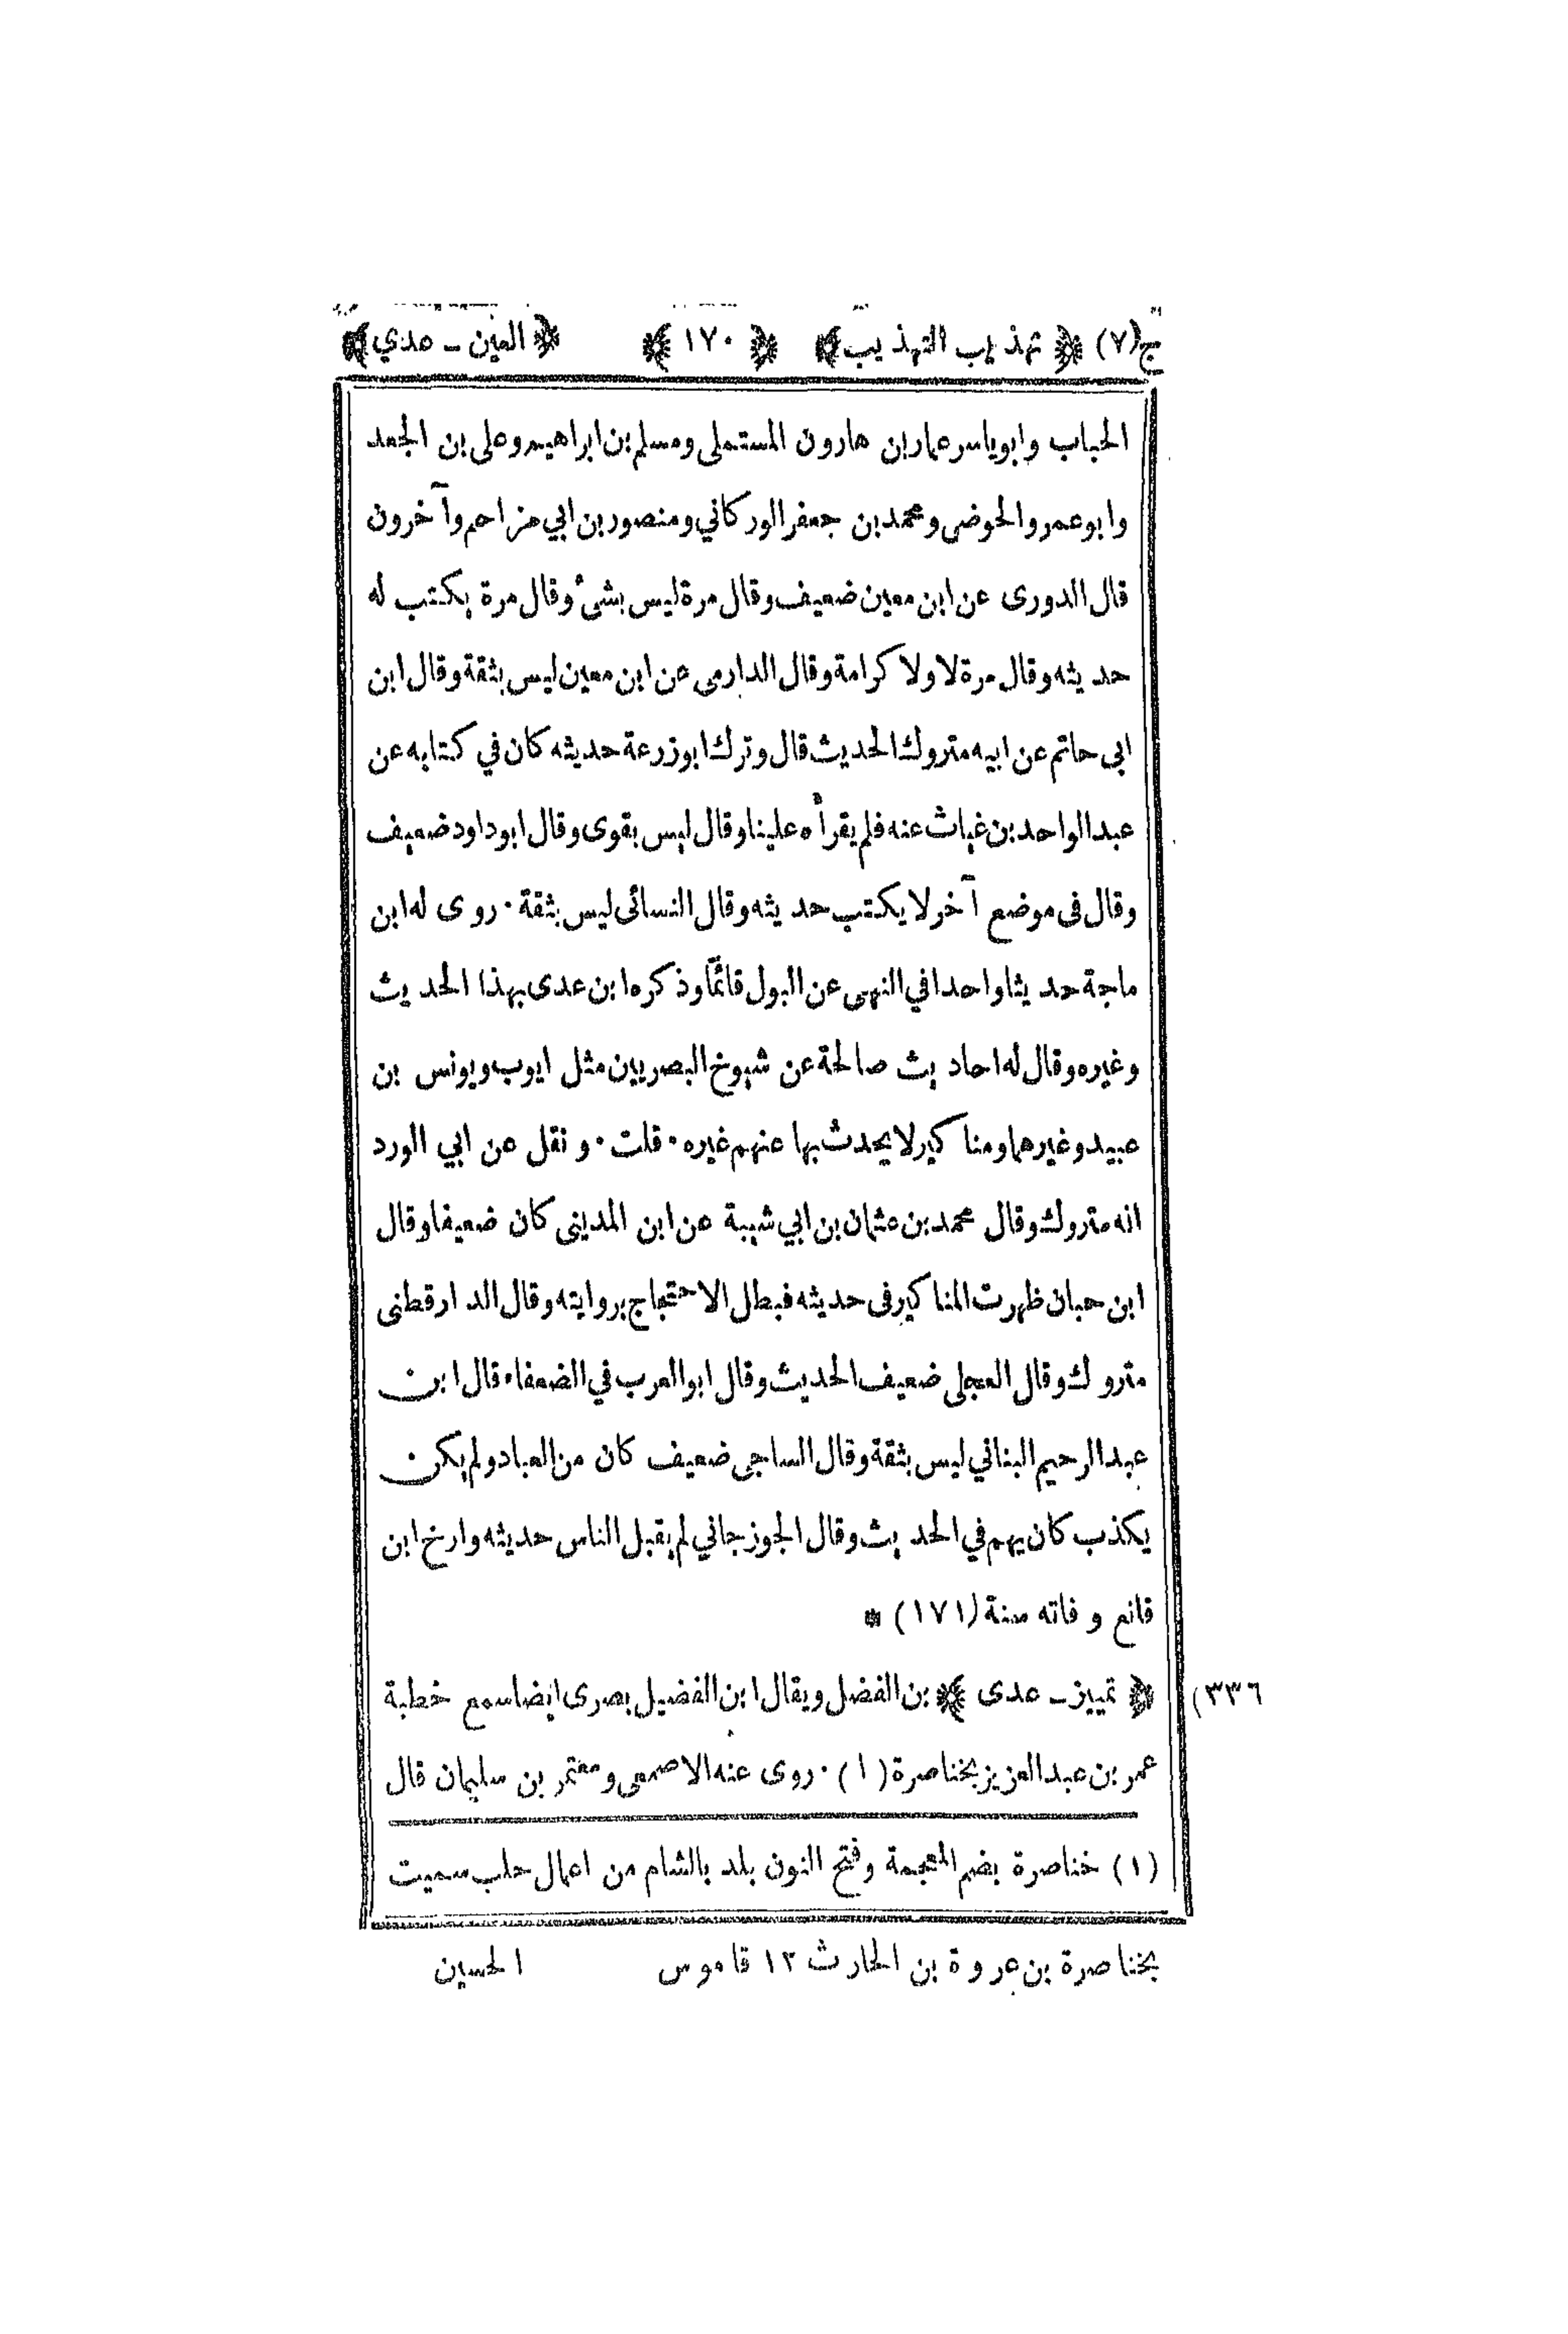 ج(٧) ﴿ تهذيب التهذيب ﴾ ﴿ ١٧٠ ﴾ ﴿ العين ـ عدي ﴾
الحباب وابوياسر عمار بن هارون المستملى ومسلم بن ابراهيم وعلى بن الجعد
وابو عمر والحوضى ومحمد بن جعفر الوركاني ومنصور بن ابي مزاحم وآخرون
قال الدورى عن ابن معين ضعيف وقال مرة ليس بشئ وقال مرة يكتب له
حديثه وقال مرة لا ولا كرامة وقال الدارمى عن ابن معين ليس بثقة وقال ابن
ابى حاتم عن ابيه متروك الحديث قال وترك ابو زرعة حديثه كان في كتابه عن
عبد الواحد بن غياث عنه فلم يقرأه علينا وقال ليس بقوى وقال ابو داود ضعيف
وقال فى موضع آخر لا يكتب حديثه وقال النسائى ليس بثقة٠ روى له ابن
ماجة حديثا واحدا في النهى عن البول قائمًا وذكره ابن عدى بهذا الحديث
وغيره وقال له احاديث صالحة عن شيوخ البصريين مثل ايوب ويونس بن
عبيد وغيرهما ومناكير لا يحدث بها عنهم غيره٠ قلت٠ ونقل عن ابي الورد
انه متروك وقال محمد بن عثمان بن ابي شيبة عن ابن المدينى كان ضعيفا وقال
ابن حبان ظهرت المناكير فى حديثه فبطل الاحتجاج بروايته وقال الدارقطنى
متروك وقال العجلى ضعيف الحديث وقال ابو العرب في الضعفاء قال ابن
عبد الرحيم البناني ليس بثقة وقال الساجى ضعيف كان من العباد ولم يكن
يكذب كان يهم في الحديث وقال الجوزجاني لم يقبل الناس حديثه وارخ ابن
قانع وفاته سنة (١٧١) *
(٣٣٦ ﴿ تمييز ـ عدى ﴾ بن الفضل ويقال ابن الفضيل بصرى ايضا سمع خطبة
عمر بن عبد العزيز بخناصرة (١)٠ روى عنه الاصمعى ومعتمر بن سليمان قال
(١) خناصرة بضم المعجمة وفتح النون بلد بالشام من اعمال حلب سميت
بخناصرة بن عروة بن الحارث ١٢ قاموس الحسين